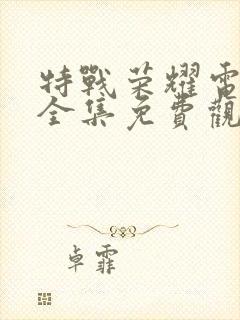 特戰荣耀電
全集免費觀
卓霏